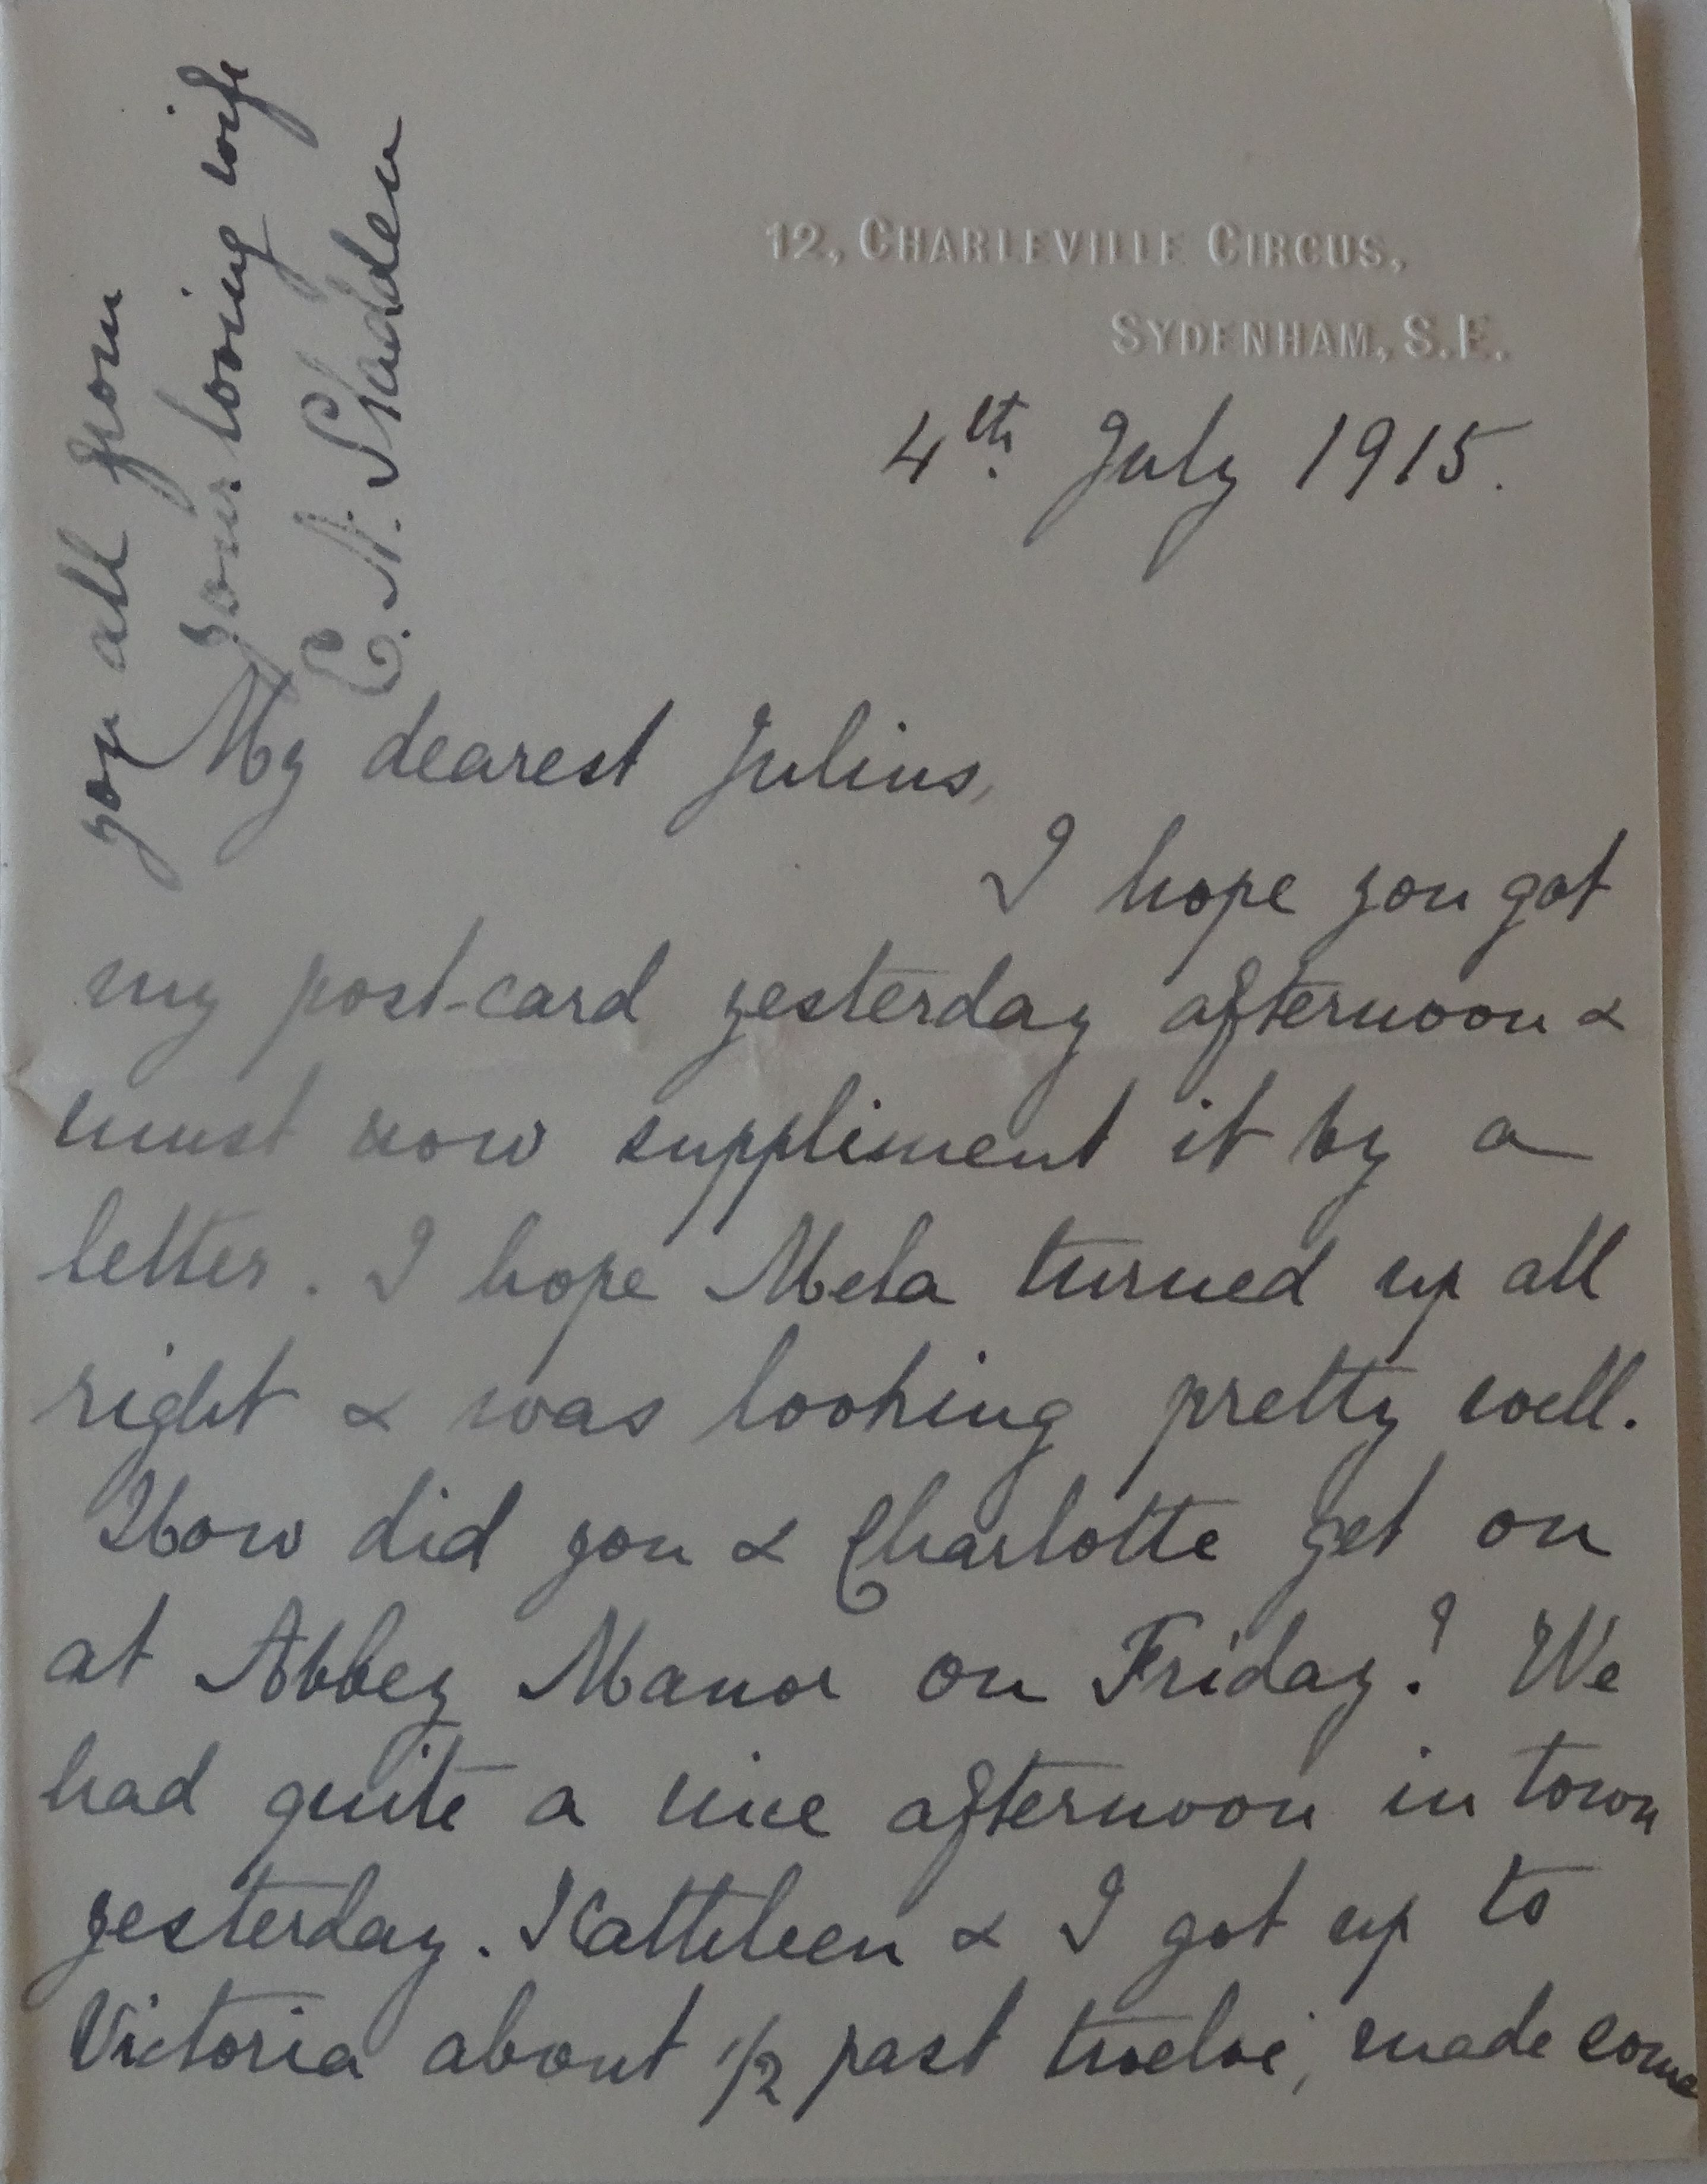 12, CHARLEVILLE CIRCUS,
SYDENHAM, S.E.
4th July 1915.
My dearest Julius,
I hope you got
my post-card yesterday afternoon &
must now suppliment it by a
letter. I hope Mela turned up all
right & was looking pretty well.
How did you & Charlotte get on
at Abbey Manor on Friday? We
had quite a nice afternoon in town
yesterday. Kathleen & I got up to
Victoria about 1/2 past twelve, made some
you all from
your loving wife
E. N. Sladden